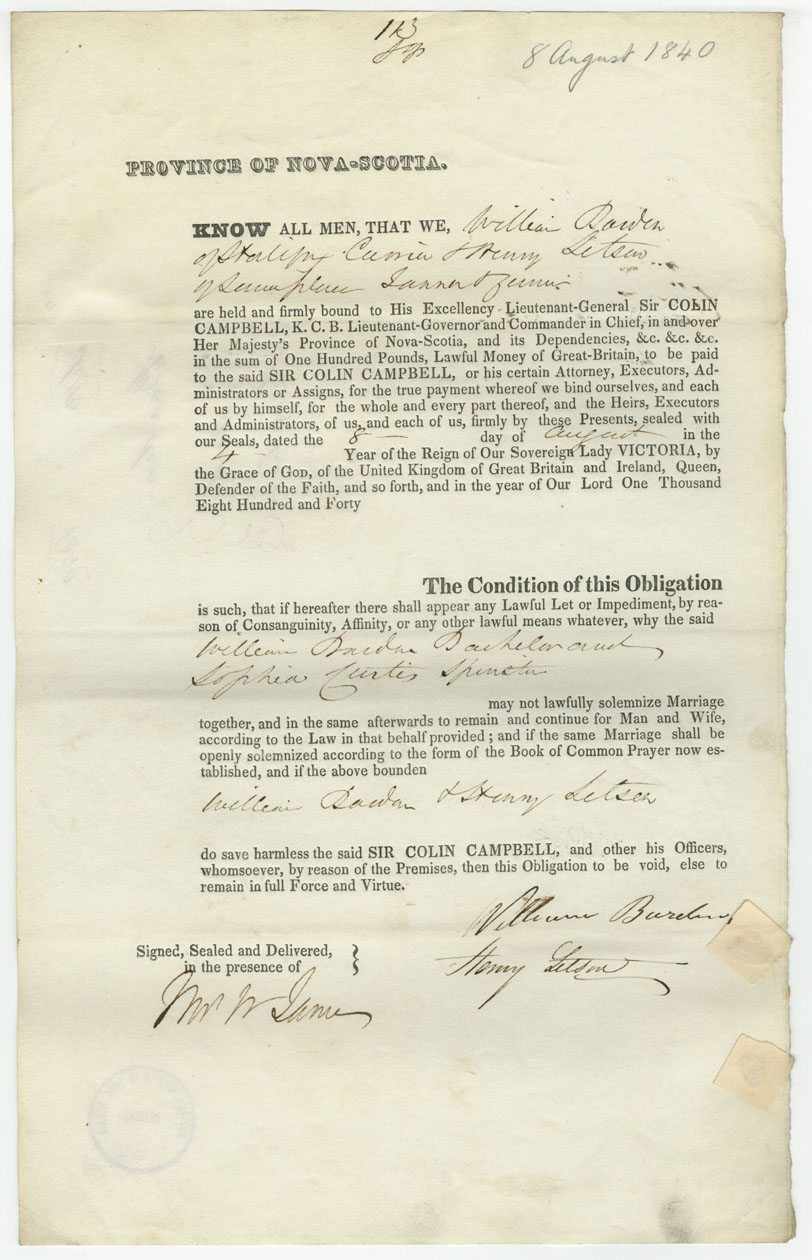 113
8 August 1840
PROVINCE OF NOVA-SCOTIA.
KNOW ALL MEN, THAT WE, William Barden
of Halifax Currier & Henry Letson
of same place Tanner & Currier
are held and firmly bound to His Excellency Lieutenant-General Sir COLIN
CAMPBELL, K. C. B. Lieutenant-Governor and Commander in Chief, in and over
Her Majesty's Province of Nova-Scotia, and its Dependencies, &c. &c. &c.
in the sum of One Hundred Pounds, Lawful Money of Great-Britain, to be paid
to the said SIR COLIN CAMPBELL, or his certain Attorney, Executors, Ad-
ministrators or Assigns, for the true payment whereof we bind ourselves, and each
of us by himself, for the whole and every part thereof, and the Heirs, Executors
and Administrators, of us, and each of us, firmly by these Presents, sealed with
our Seals, dated the 8 day of August in the
4 Year of the Reign of Our Sovereign Lady VICTORIA, by
the Grace of GOD, of the United Kingdom of Great Britain and Ireland, Queen,
Defender of the Faith, and so forth, and in the year of Our Lord One Thousand
Eight Hundred and Forty
The Condition of this Obligation
is such, that if hereafter there shall appear any Lawful Let or Impediment, by rea-
son of Consanguinity, Affinity, or any other lawful means whatever, why the said
William Barden Bachelor and
Sophia Curtis Spinster
may not lawfully solemnize Marriage
together, and in the same afterwards to remain and continue for Man and Wife,
according to the Law in that behalf provided ; and if the same Marriage shall be
openly solemnized according to the form of the Book of Common Prayer now es-
tablished, and if the above bounden
William Barden & Henry Letson
do save harmless the said SIR COLIN CAMPBELL, and other his Officers,
whomsoever, by reason of the Premises, then this Obligation to be void, else to
remain in full Force and Virtue.
William Barden
Signed, Sealed and Delivered,
in the presence of
Henry Letson
W James